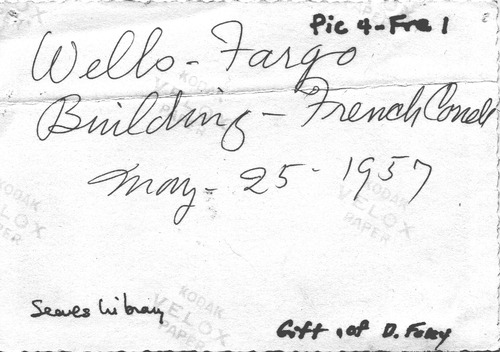 Pic 4-Fre 1
2
Wells-Fargo
Building-French Corral
May-25-1957
KODAK
VELOX
PAPER
KODAK
VELOX
PAPER
KODAK
VELOX
PAPER
Searls Library
Gift of D. Foley